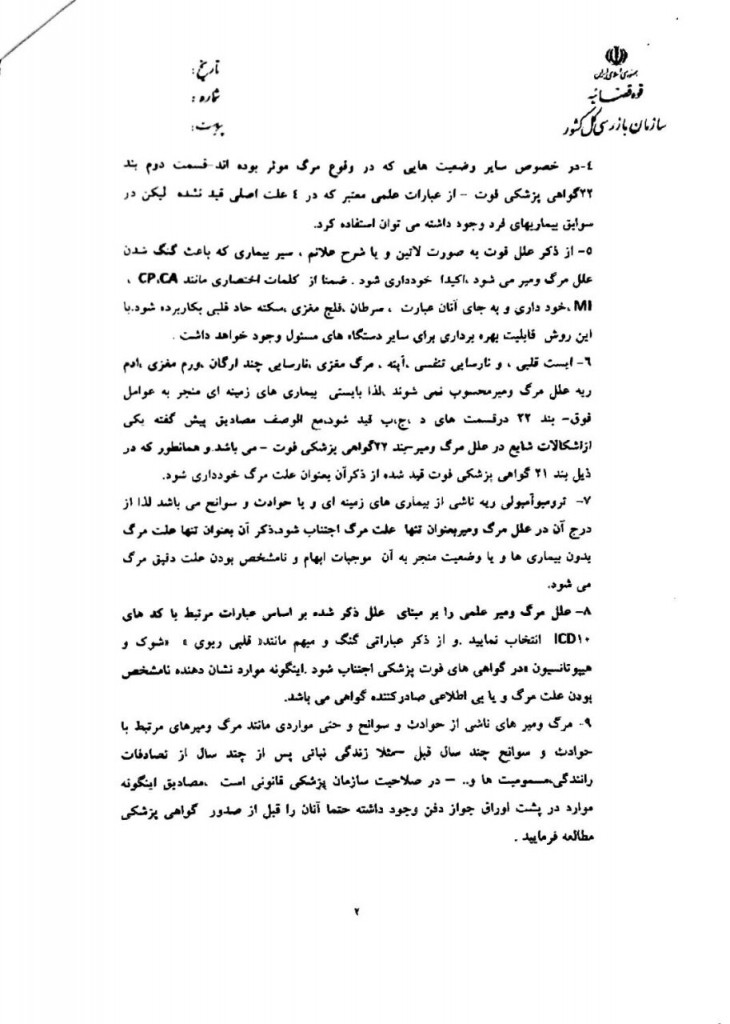 جمهوری اسلامی ایران
قوه قضائیه
سازمان بازرسی کل کشور
تاریخ :
شماره :
پیوست :
٤-در خصوص سایر وضعیت هایی که در وقوع مرگ موثر بوده اند-قسمت دوم بند
۲۲گواهی پزشکی فوت - از عبارات علمی معتبر که در ٤ علت اصلی قید نشده لیکن در
سوابق بیماریهای فرد وجود داشته می توان استفاده کرد.
۵- از ذکر علل فوت به صورت لاتین و یا شرح علائم ، سیر بیماری که باعث گنگ شدن
علل مرگ ومیر می شود ،اکیدا خودداری شود . ضمنا از کلمات اختصاری مانند CP،CA ،
MI ،خود داری و به جای آنان عبارت ، سرطان، فلج مغزی ،سکته حاد قلبی بکاربرده شود.با
این روش قابلیت بهره برداری برای سایر دستگاه های مسئول وجود خواهد داشت .
۶- ایست قلبی ، و نارسایی تنفسی ،آپنه ، مرگ مغزی ،نارسایی چند ارگان ،ورم مغزی ،ادم
ریه علل مرگ ومیرمحسوب نمی شوند ،لذا بایستی بیماری های زمینه ای منجر به عوامل
فوق- بند ۲۲ درقسمت های د ،ج،ب قید شود،مع الوصف مصادیق پیش گفته یکی
ازاشکالات شایع در علل مرگ ومیر-بند ۲۲گواهی پزشکی فوت - می باشد.و همانطور که در
ذیل بند ۲۱ گواهی پزشکی فوت قید شده از ذکرآن بعنوان علت مرگ خودداری شود.
۷- ترومبوآمبولی ریه ناشی از بیماری های زمینه ای و یا حوادث و سوانح می باشد لذا از
درج آن در علل مرگ ومیربعنوان تنها علت مرگ اجتناب شود.ذکر آن بعنوان تنها علت مرگ
بدون بیماری ها و یا وضعیت منجر به آن موجبات ابهام و نامشخص بودن علت دقیق مرگ
می شود.
۸- علل مرگ ومیر علمی را بر مبنای علل ذکر شده بر اساس عبارات مرتبط با کد های
ICD۱۰ انتخاب نمایید .و از ذکر عباراتی گنگ و مبهم مانند« قلبی ریوی » «شوک و
هیپوتانسیون »در گواهی های فوت پزشکی اجتناب شود .اینگونه موارد نشان دهنده نامشخص
بودن علت مرگ و یا بی اطلاعی صادرکننده گواهی می باشد.
۹- مرگ ومیر های ناشی از حوادث و سوانح و حتی مواردی مانند مرگ ومیرهای مرتبط با
حوادث و سوانح چند سال قبل –مثلا زندگی نباتی پس از چند سال از تصادفات
رانندگی،مسمومیت ها و.. – در صلاحیت سازمان پزشکی قانونی است ،مصادیق اینگونه
موارد در پشت اوراق جواز دفن وجود داشته حتما آنان را قبل از صدور گواهی پزشکی
مطالعه فرمایید .
۲